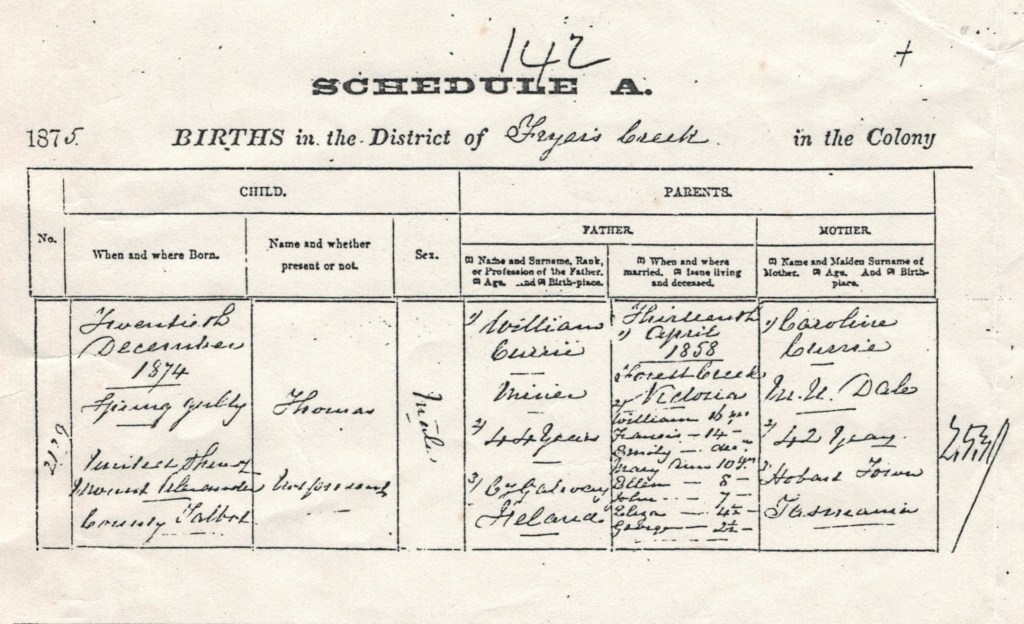 142
SCHEDULE A.
1875. BIRTHS in the District of Fryers Creek in the Colony
CHILD.
PARENTS.
FATHER.
MOTHER.
No.
When and where Born.
Name and whether
present or not.
Sex.
(1) Name and Surname, Rank,
or Profession of the Father.
(2) Age. And (3) Birth-place.
(1) When and where
married. (2) Issue living
and deceased.
(1) Name and Maiden Surname of
Mother. (2) Age. And (3) Birth-
place.
Twentieth
December
1874
Spring gully
United Shire of
Mount Alexander
County Talbot
Thomas
Not present
Male
1) William
Currie
Miner
2) 44 Years
3) Co Galway
Ireland
Thirteenth
1) April
1858
Forest Creek
Victoria
2) William 16 yrs
Francis — 14 —
Emily — dec.
Mary Ann 10 yrs
Ellen — 8 —
John — 7 —
Eliza — 4½ —
George — 2½ —
1) Caroline
Currie
M. N. Dale
2) 42 Years
3) Hobart Town
Tasmania